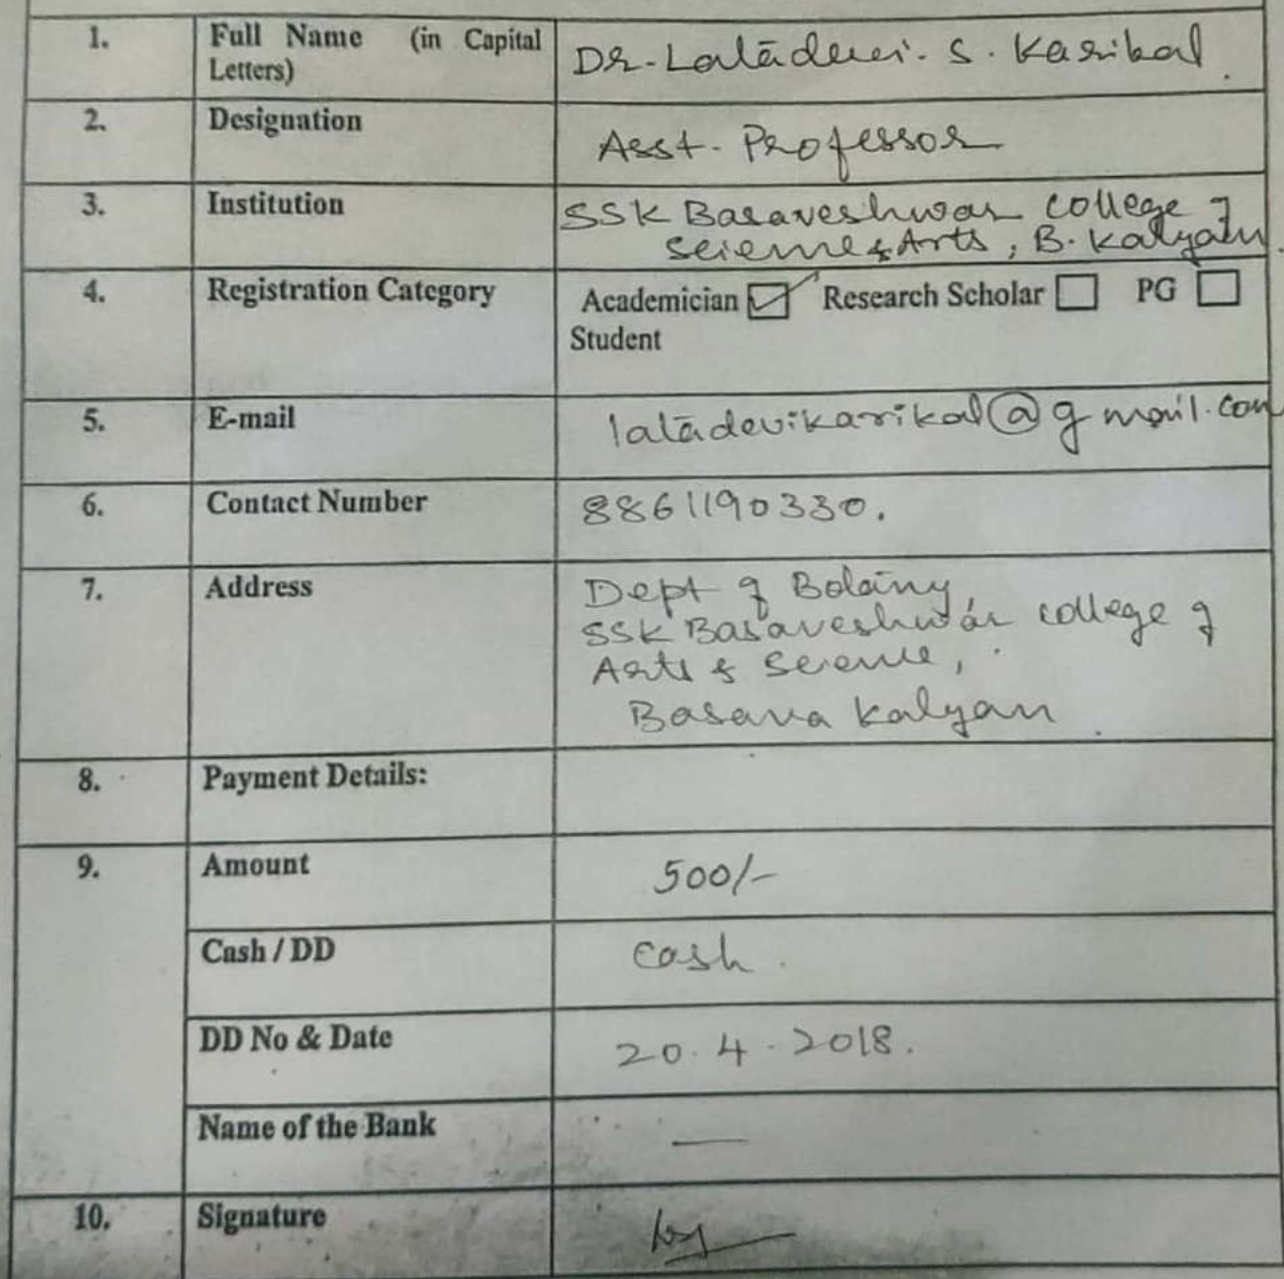 1. Full Name (in Capital Letters) Dr. Latadevi. S. Karikal.
2. Designation Asst. Professor
3. Institution SSK Basaveshwar College of
Science & Arts, B. Kalyan.
4. Registration Category Academician ☑ Research Scholar ☐ PG ☐
Student
5. E-mail latadevikarikal@gmail.com
6. Contact Number 8861190330.
7. Address Dept of Botany,
SSK Basaveshwar college of
Arts & Science,
Basava Kalyan.
8. Payment Details:
9. Amount 500/-
Cash / DD Cash.
DD No & Date 20.4.2018.
Name of the Bank —
10. Signature